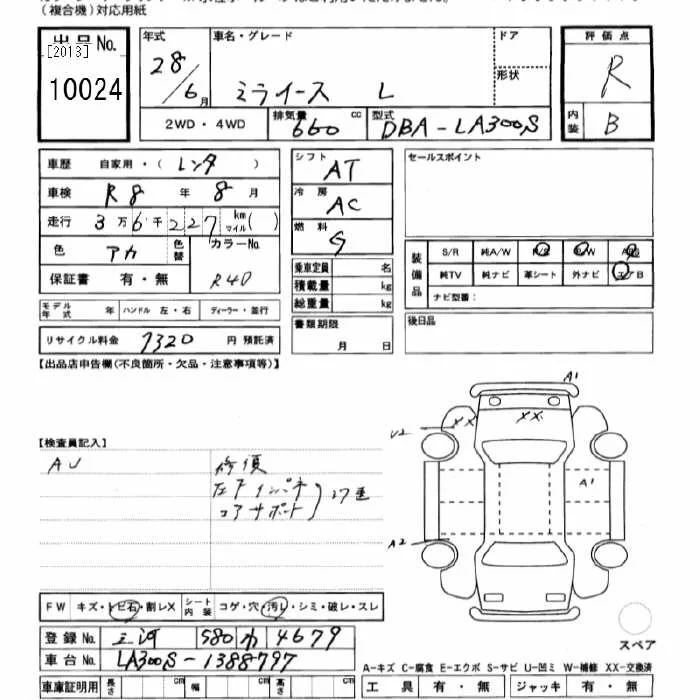 （複合機）対応用紙
出品 No.
[2013]
10024
年式
28/6月
車名・グレード
ミライース L
ドア
形状
評価点
R
内装
B
2WD・4WD
排気量
660 cc
型式
DBA-LA300S
車歴 自家用・（レンタ）
車検 R8年 8月
走行 3万6千227 km マイル( )
色 アカ
色替
カラーNo.
R40
保証書 有・無
シフト
AT
冷房
AC
燃料
G
乗車定員 名
積載量 kg
総重量 kg
書類期限
月 日
セールスポイント
装備品
S/R 純A/W P/S P/W ABS
純TV 純ナビ 革シート 外ナビ エアB
ナビ型番：
後日品
モデル年式 年 ハンドル 左・右 ディーラー・並行
リサイクル料金 7320 円 預託済
【出品店申告欄(不良箇所・欠品・注意事項等)】
【検査員記入】
AU
修復
左Fインパネ
コアサポート
27重
A1
U2
XX
XX
A1
A2
FW キズ・トビ石・割レX
シート内装 コゲ・穴・汚レ・シミ・破レ・スレ
登録 No. 三河 580 わ 4679
車台 No. LA300S-1388797
車庫証明用 長さ cm 幅 cm 高さ cm
スペア
A-キズ C-腐食 E-エクボ S-サビ U-凹ミ W-補修 XX-交換済
工具 有・無 ジャッキ 有・無